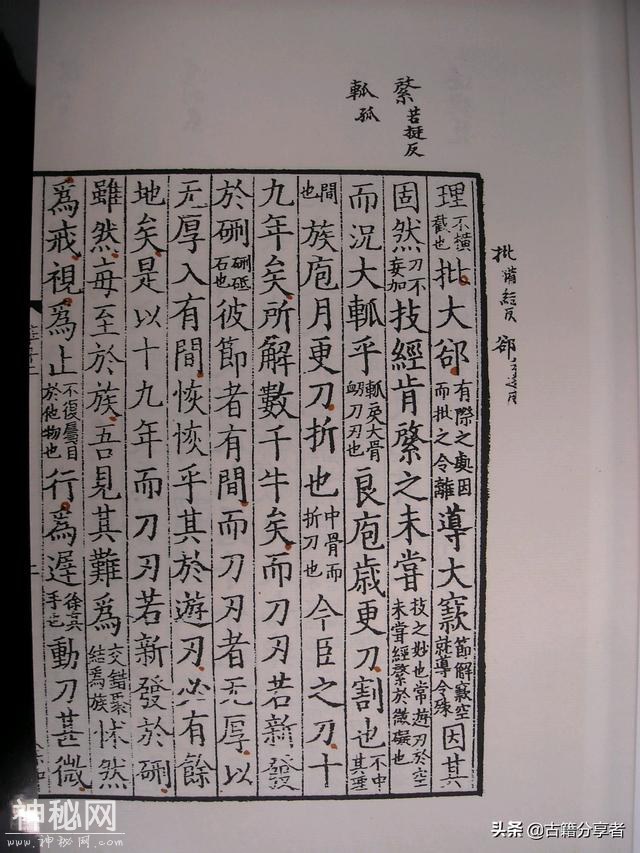 批備結反 郤
綮苦挺反
軱孤
理不橫截也批大郤有際之處因而批之令離導大窾節解窾空就導令殊因其
固然刀不妄加技經肯綮之未嘗技之妙也常遊刃於空未嘗經綮於微礙也
而況大軱乎軱戾大骨衂刀刃也良庖歲更刀割也不中其理
間也族庖月更刀折也中骨而折刀也今臣之刀十
九年矣所解數千牛矣而刀刃若新發
於硎硎砥石也彼節者有間而刀刃者无厚以
无厚入有間恢恢乎其於遊刃必有餘
地矣是以十九年而刀刃若新發於硎
雖然每至於族吾見其難爲交錯聚結爲族怵然
爲戒視爲止不復屬目於他物也行爲遲徐其手也動刀甚微
神秘网
www.神秘网.com
头条 @古籍分享者